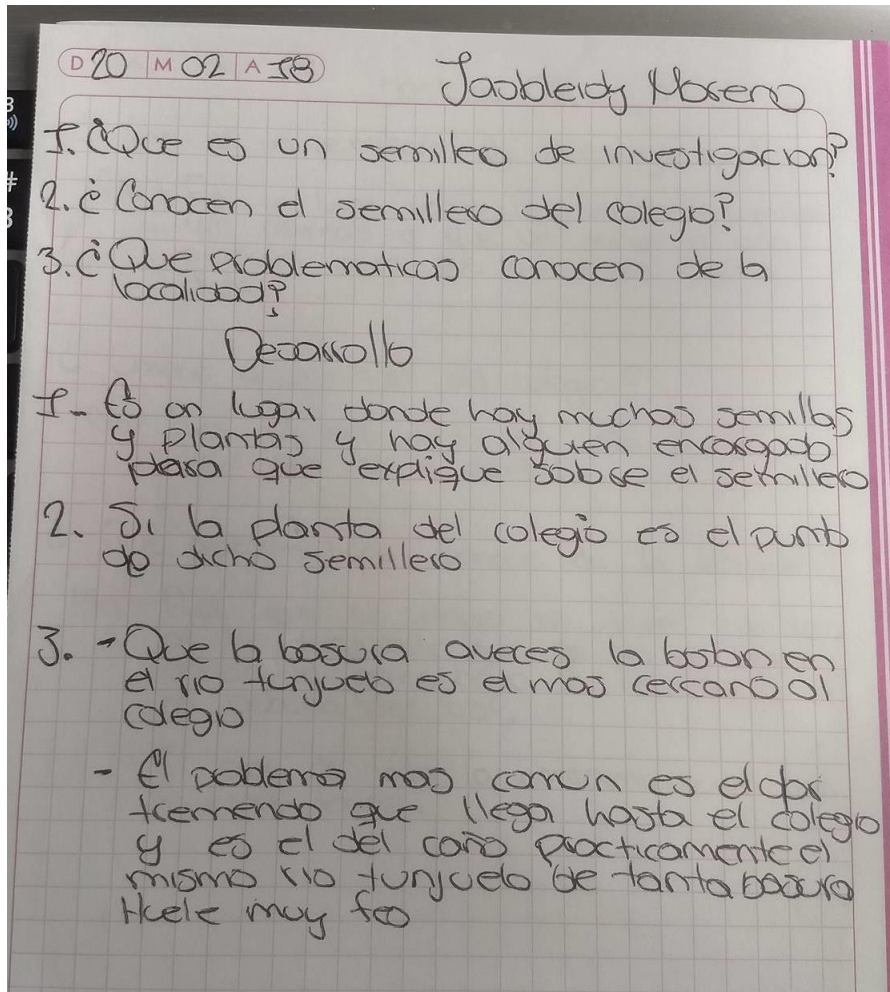 D 20 M 02 A 18
Jaobleidy Moreno
1. ¿Que es un semillero de investigacion?
2. ¿Conocen el semillero del colegio?
3. ¿Que problematicas conocen de la
localidad?
Desarrollo
1- Es un lugar donde hay muchas semillas
y plantas y hay alguien encargado
para que explique sobre el semillero
2. Si la planta del colegio es el punto
de dicho semillero
3. - Que la basura aveces la botan en
el rio tunjuelo es el mas cercano al
colegio
- El problema mas comun es el olor
tremendo que llega hasta el colegio
y es el del caño practicamente el
mismo rio tunjuelo de tanta basura
Huele muy feo